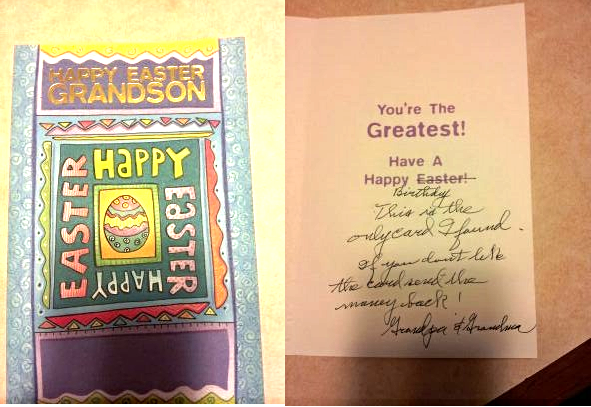 HAPPY EASTER
GRANDSON
HAPPY
EASTER
HAPPY
EASTER
You're The
Greatest!
Have A
Happy Easter!
Birthday
This is the
only card I found.
If you don't like
the card send the
money back!
Grandpa & Grandma